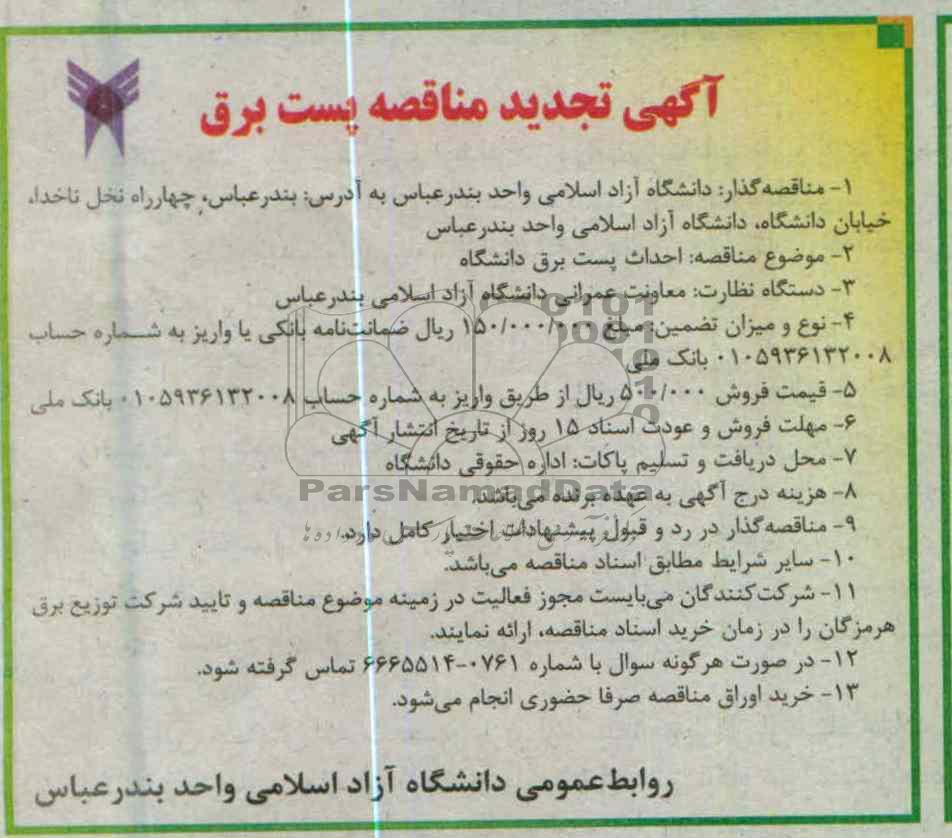 آگهی تجدید مناقصه پست برق
۱- مناقصه‌گذار: دانشگاه آزاد اسلامی واحد بندرعباس به آدرس: بندرعباس، چهارراه نخل ناخدا،
خیابان دانشگاه، دانشگاه آزاد اسلامی واحد بندرعباس
۲- موضوع مناقصه: احداث پست برق دانشگاه
۳- دستگاه نظارت: معاونت عمرانی دانشگاه آزاد اسلامی بندرعباس
۴- نوع و میزان تضمین: مبلغ ۱۵۰/۰۰۰/۰۰۰ ریال ضمانت‌نامه بانکی یا واریز به شماره حساب
۰۱۰۵۹۳۶۱۳۲۰۰۸ بانک ملی
۵- قیمت فروش ۵۰۰/۰۰۰ ریال از طریق واریز به شماره حساب ۰۱۰۵۹۳۶۱۳۲۰۰۸ بانک ملی
۶- مهلت فروش و عودت اسناد ۱۵ روز از تاریخ انتشار آگهی
۷- محل دریافت و تسلیم پاکات: اداره حقوقی دانشگاه
ParsNamadData
۸- هزینه درج آگهی به عهده برنده می‌باشد.
۹- مناقصه‌گذار در رد و قبول پیشنهادات اختیار کامل دارد.
۱۰- سایر شرایط مطابق اسناد مناقصه می‌باشد.
۱۱- شرکت‌کنندگان می‌بایست مجوز فعالیت در زمینه موضوع مناقصه و تایید شرکت توزیع برق
هرمزگان را در زمان خرید اسناد مناقصه، ارائه نمایند.
۱۲- در صورت هرگونه سوال با شماره ۰۷۶۱-۶۶۶۵۵۱۴ تماس گرفته شود.
۱۳- خرید اوراق مناقصه صرفا حضوری انجام می‌شود.
روابط‌عمومی دانشگاه آزاد اسلامی واحد بندرعباس